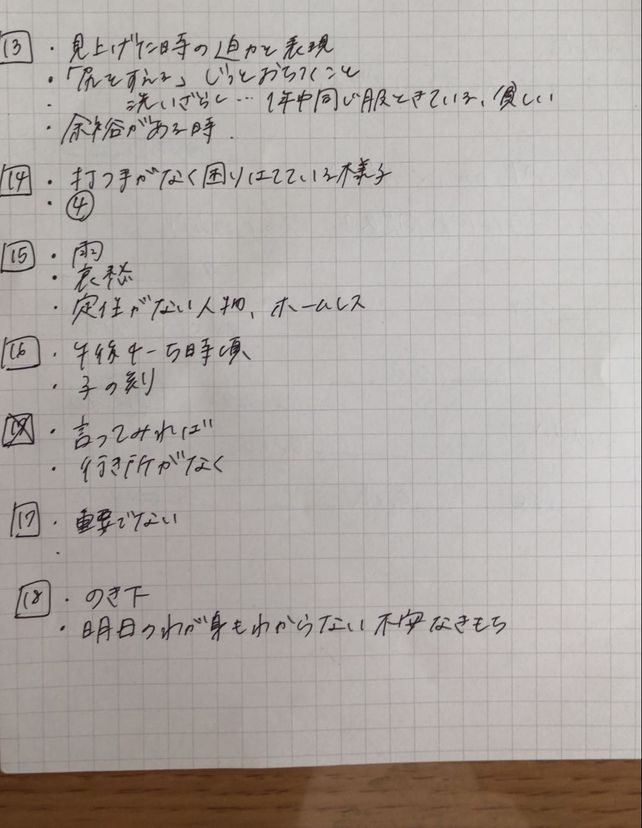 13 ・見上げた時の迫力を表現
・「尻をすえる」じっとおちつくこと
・ 洗いざらし… 1年中同じ服をきている、貧しい
・余裕がある時.
14 ・打つ手がなく困りはてている様子
・④
15 ・雨
・哀愁
・定住がない人物、ホームレス
16 ・午後4-5時頃
・子の刻
・言ってみれば
・行き所がなく
17 ・重要でない
・
18 ・のき下
・明日のわが身もわからない不安なきもち